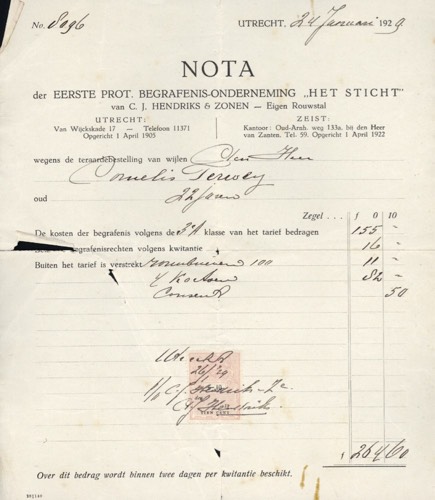 No. 8096 UTRECHT, 24 Januari 1929
NOTA
der EERSTE PROT. BEGRAFENIS-ONDERNEMING „HET STICHT”
van C. J. HENDRIKS & ZONEN — Eigen Rouwstal
UTRECHT: ZEIST:
Van Wijckskade 17 — Telefoon 11371 Kantoor: Oud-Arnh. weg 133a, bij den Heer
Opgericht 1 April 1905 van Zanten. Tel. 59 Opgericht 1 April 1922
wegens de teraardebestelling van wijlen Den Heer
Cornelis Terwey
oud 22 jaren
Zegel . . . 1 0 10
De kosten der begrafenis volgens de 3e klasse van het tarief bedragen 155 -
begrafenisrechten volgens kwitantie 16 -
Buiten het tarief is verstrekt rouwbrieven 100 11 -
4 Koetsen 82 -
Consent 50
Utrecht
26/1 29
C. J. Hendriks
C J Hendriks
264 60
Over dit bedrag wordt binnen twee dagen per kwitantie beschikt.